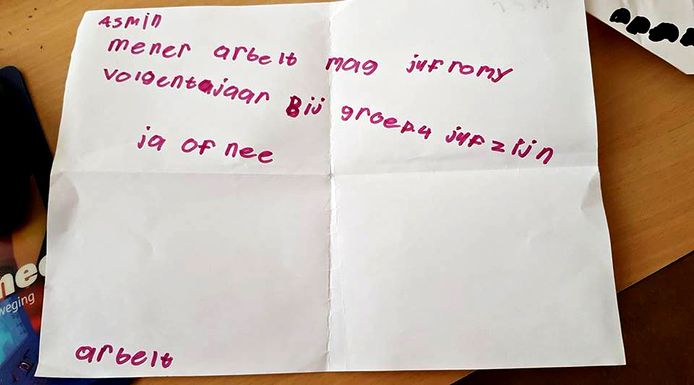 Asmin
mener arbelt mag jufromy
volgentajaar Bij groep4 juf zijn
ja of nee
arbelt
weging